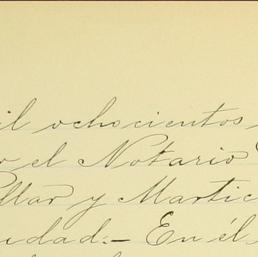 il ochocientos
o el Notario
llar y Martic
udad.— En él